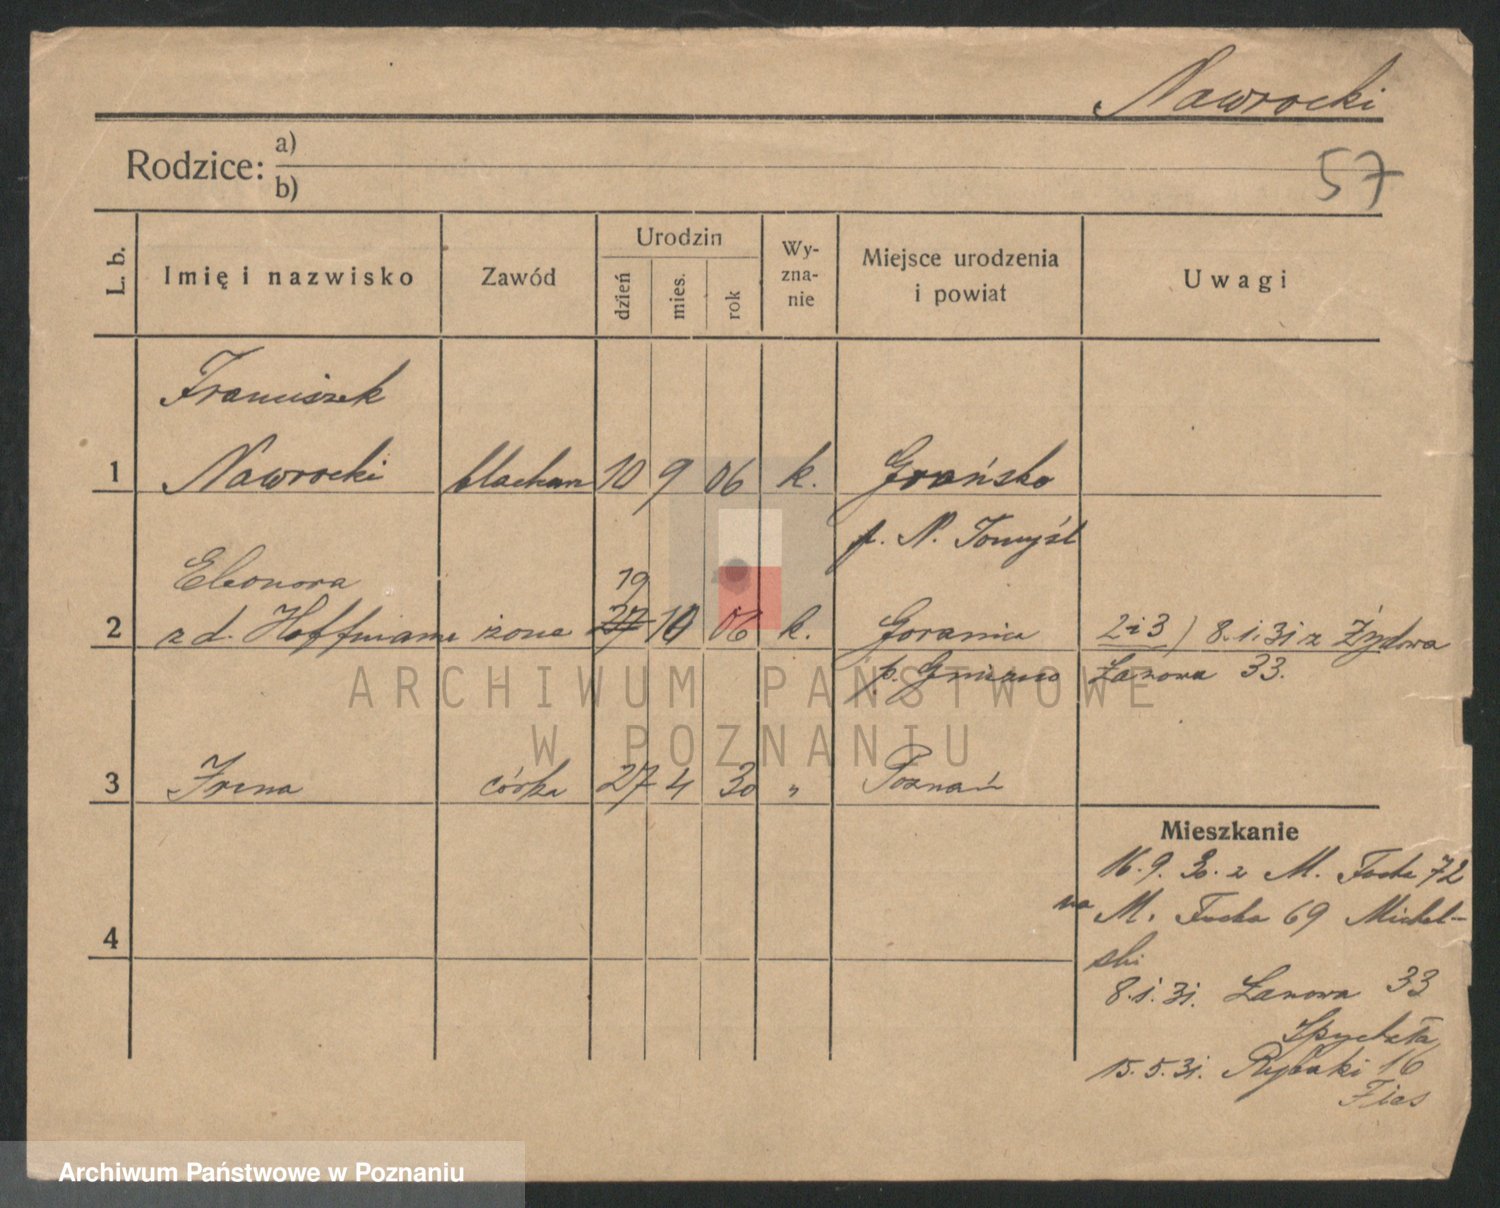 Nawrocki
Rodzice: a)
b)
57
L. b.
Imię i nazwisko
Zawód
Urodzin
dzień
mies.
rok
Wy-
zna-
nie
Miejsce urodzenia
i powiat
Uwagi
Franciszek
1 Nawrocki blacharz 10 9 06 k. Grońsko
p. N. Tomyśl
Eleonora 19
2 z d. Hoffmann żona 27 10 06 k. Goranin 2 i 3) 8.i.31 z Żydowa
p. Gniezno Łanowa 33.
3 Irena córka 27 4 30 " Poznań
Mieszkanie
16.9.30. z M. Focha 72
na M. Focha 69 Michal-
ski
4
8.i.31. Łanowa 33
Spychała
15.5.31. Rybaki 16
ARCHIWUM PAŃSTWOWE
W POZNANIU
Archiwum Państwowe w Poznaniu